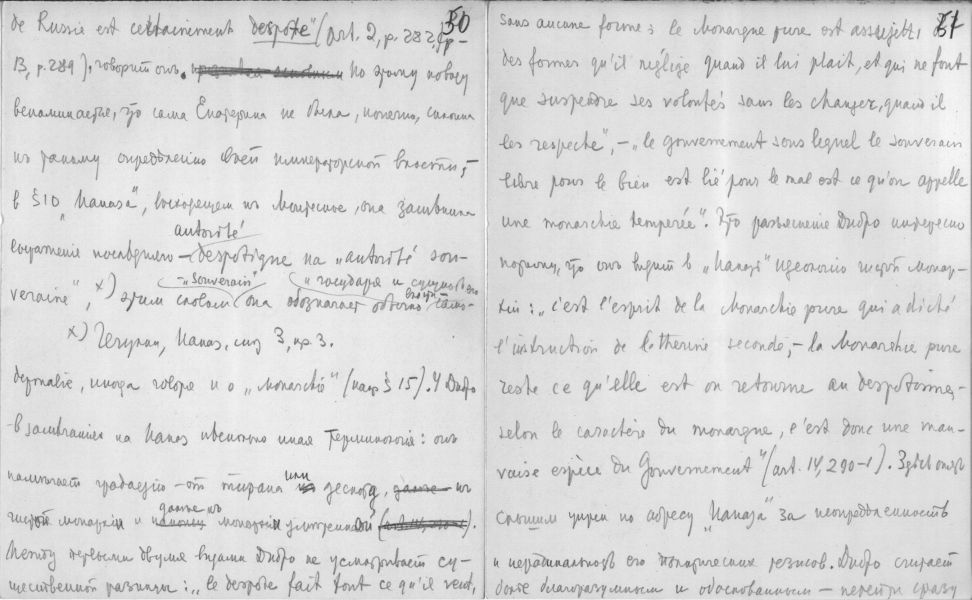 50
de Russie est certainement despote" (art. 2, p. 282, ср.
В, p. 289), говорит он. По этому поводу
вспоминается, что сама Екатерина не была, конечно, склонна
к такому определению своей императорской власти,
в § 10 „Наказа", восходящем к Монтескье, она заменила
autorité
despotique на „autorité sou-
„Souverain" („государя и
veraine", х) этим словом она обозначает обычно само-
х) Чечулин, Наказ, стр. 3, пр. 3.
державие, иногда говоря и о „monarchie" (напр. § 15). У Дидро
в замечаниях на Наказ несколько иная терминология: он
или
намечает градацию от тирана деспота, к
далее к
чистой монархии и монархии умеренной.
Между первыми двумя видами Дидро не усматривает су-
щественной разницы: „le despote fait tout ce qu'il veut,
51
sans aucune forme; le Monarque pure est assujetti à
des formes qu'il néglige quand il lui plait, et qui ne font
que suspendre ses volontés sans les changer, quand il
les respecte", – „le gouvernement sous lequel le souverain
libre pour le bien est lié pour le mal est ce qu'on appelle
une monarchie temperée". Это разъяснение Дидро интересно
потому, что он видит в „Наказе" идеологию чистой монар-
хии: „c'est l'esprit de la Monarchie pure qui a dicté
l'instruction de Catherine seconde, – la Monarchie pure
reste ce qu'elle est ou retourne au despotisme,
selon le caractère du monarque, c'est donc une mau-
vaise espèce du Gouvernement" (art. 14, 290-1). Здесь опять
слышим упрек по адресу „Наказа" за неопределенность
и нерадикальность его политических тезисов. Дидро считает
более благоразумным и обоснованным – перейти сразу